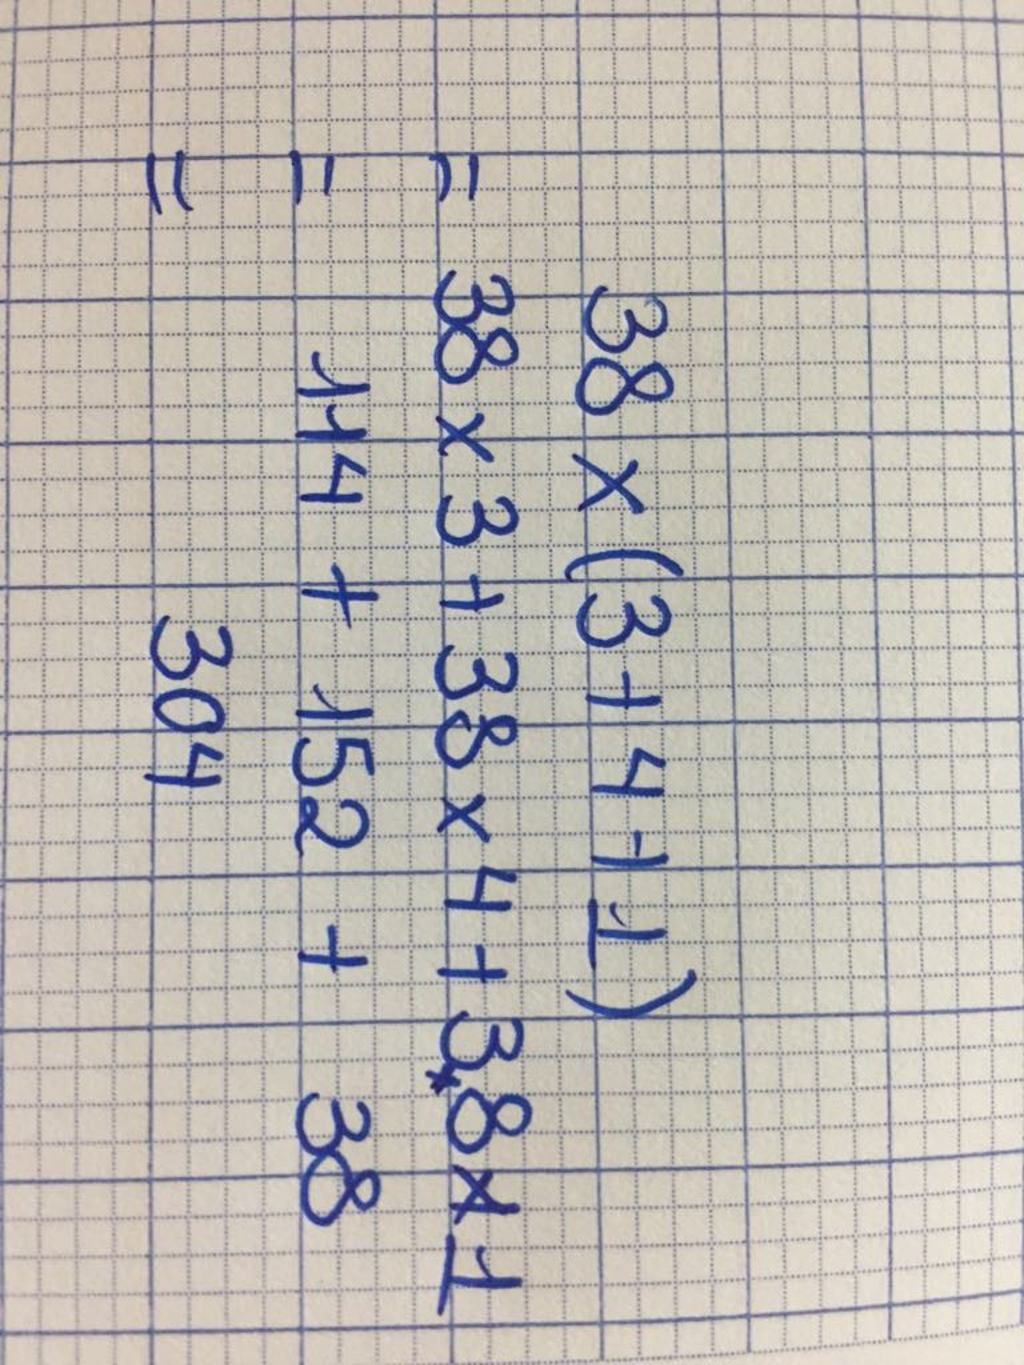 38 x (3 + 4 + 1)
= 38 x 3 + 38 x 4 + 38 x 1
= 114 + 152 + 38
= 304